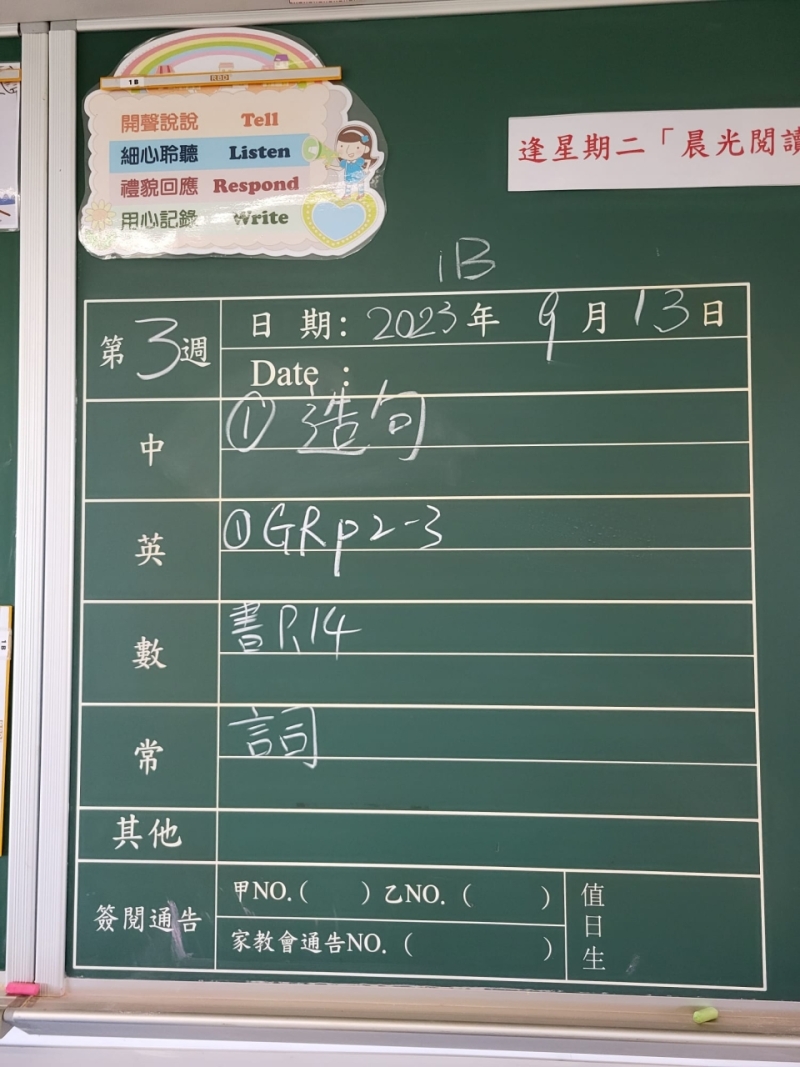 1B
開聲說說 Tell
細心聆聽 Listen
禮貌回應 Respond
用心記錄 Write
逢星期二「晨光閱讀
1B
第3週
日 期: 2023年 9月 13日
Date :
中
① 造句
英
① GR p2-3
數
書 P.14
常
詞
其他
簽閱通告
甲NO.( ) 乙NO. ( )
家教會通告NO. ( )
值日生